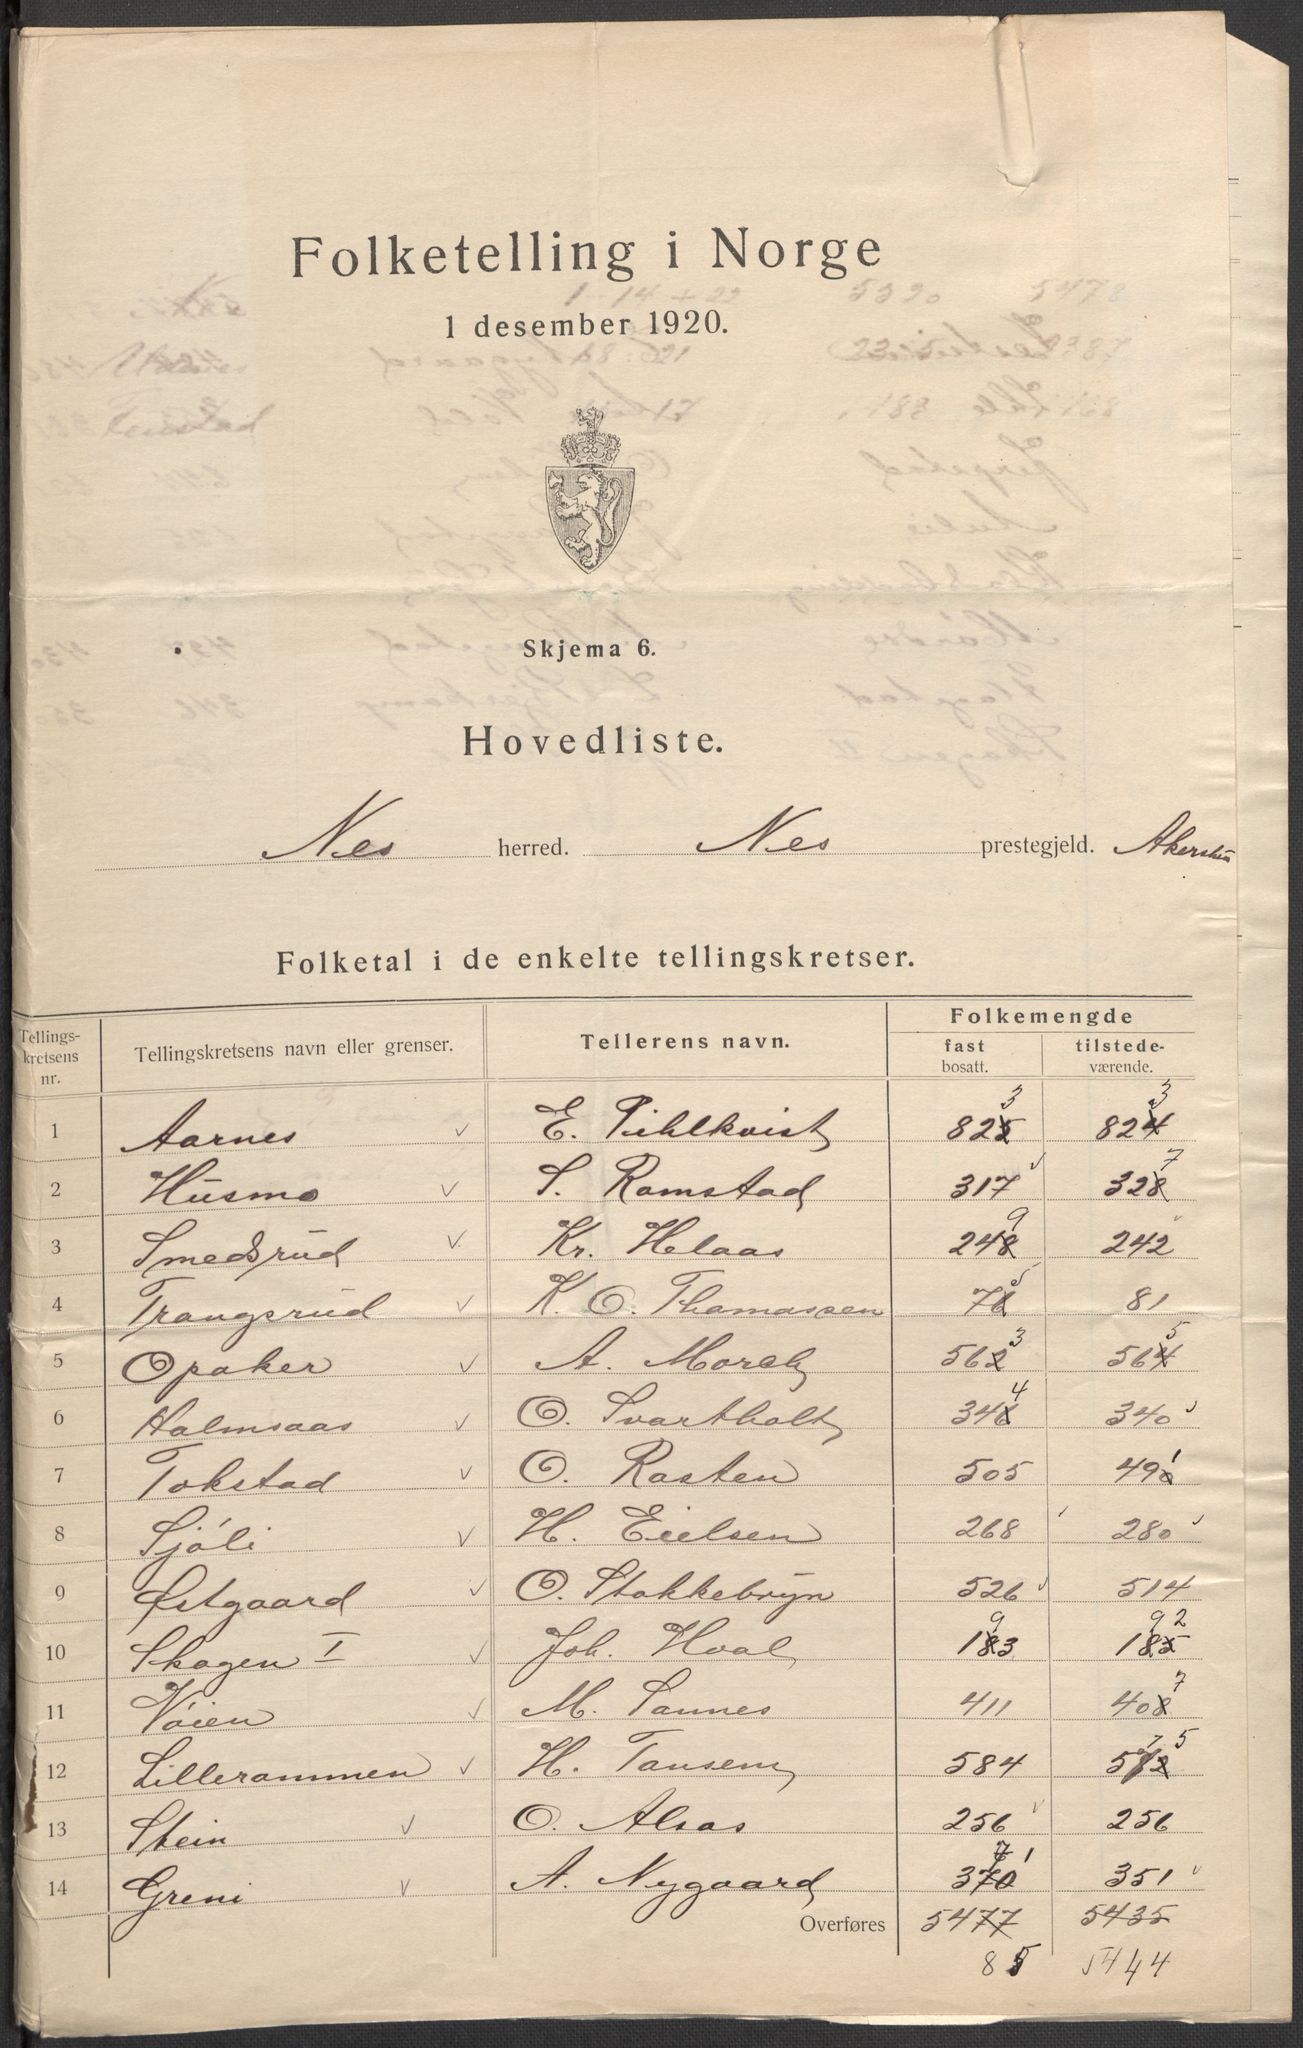 Folketelling i Norge
1 desember 1920.
Skjema 6.
Hovedliste.
Nes herred. Nes prestegjeld. Akershus
Folketal i de enkelte tellingskretser.
Tellings-kretsens nr. Tellingskretsens navn eller grenser. Tellerens navn. Folkemengde
fast bosatt. tilstede-værende.
3 3
1 Aarnes E. Pihlkvist 825 824
7
2 Husmo S. Romstad 317 328
9
3 Smedsrud Kr. Helaas 248 242
5
4 Trangsrud K. O. Thomassen 76 81
3 5
5 Opaker A. Morely 562 564
4
6 Halmsaas O. Svartholt 346 340
1
7 Tokstad O. Rasten 505 490
8 Sjöli H. Eielsen 268 280
9 Østgaard O. Stokkebryn 526 514
9 9 2
10 Skogen I Joh. Hval 183 185
7
11 Vöien M. Sannes 411 408
7 5
12 Lillerommen H. Tansem 584 512
13 Stein O. Alsos 256 256
7 1
14 Greni A. Nygaard 370 351
Overføres 5477 5435
85 5444